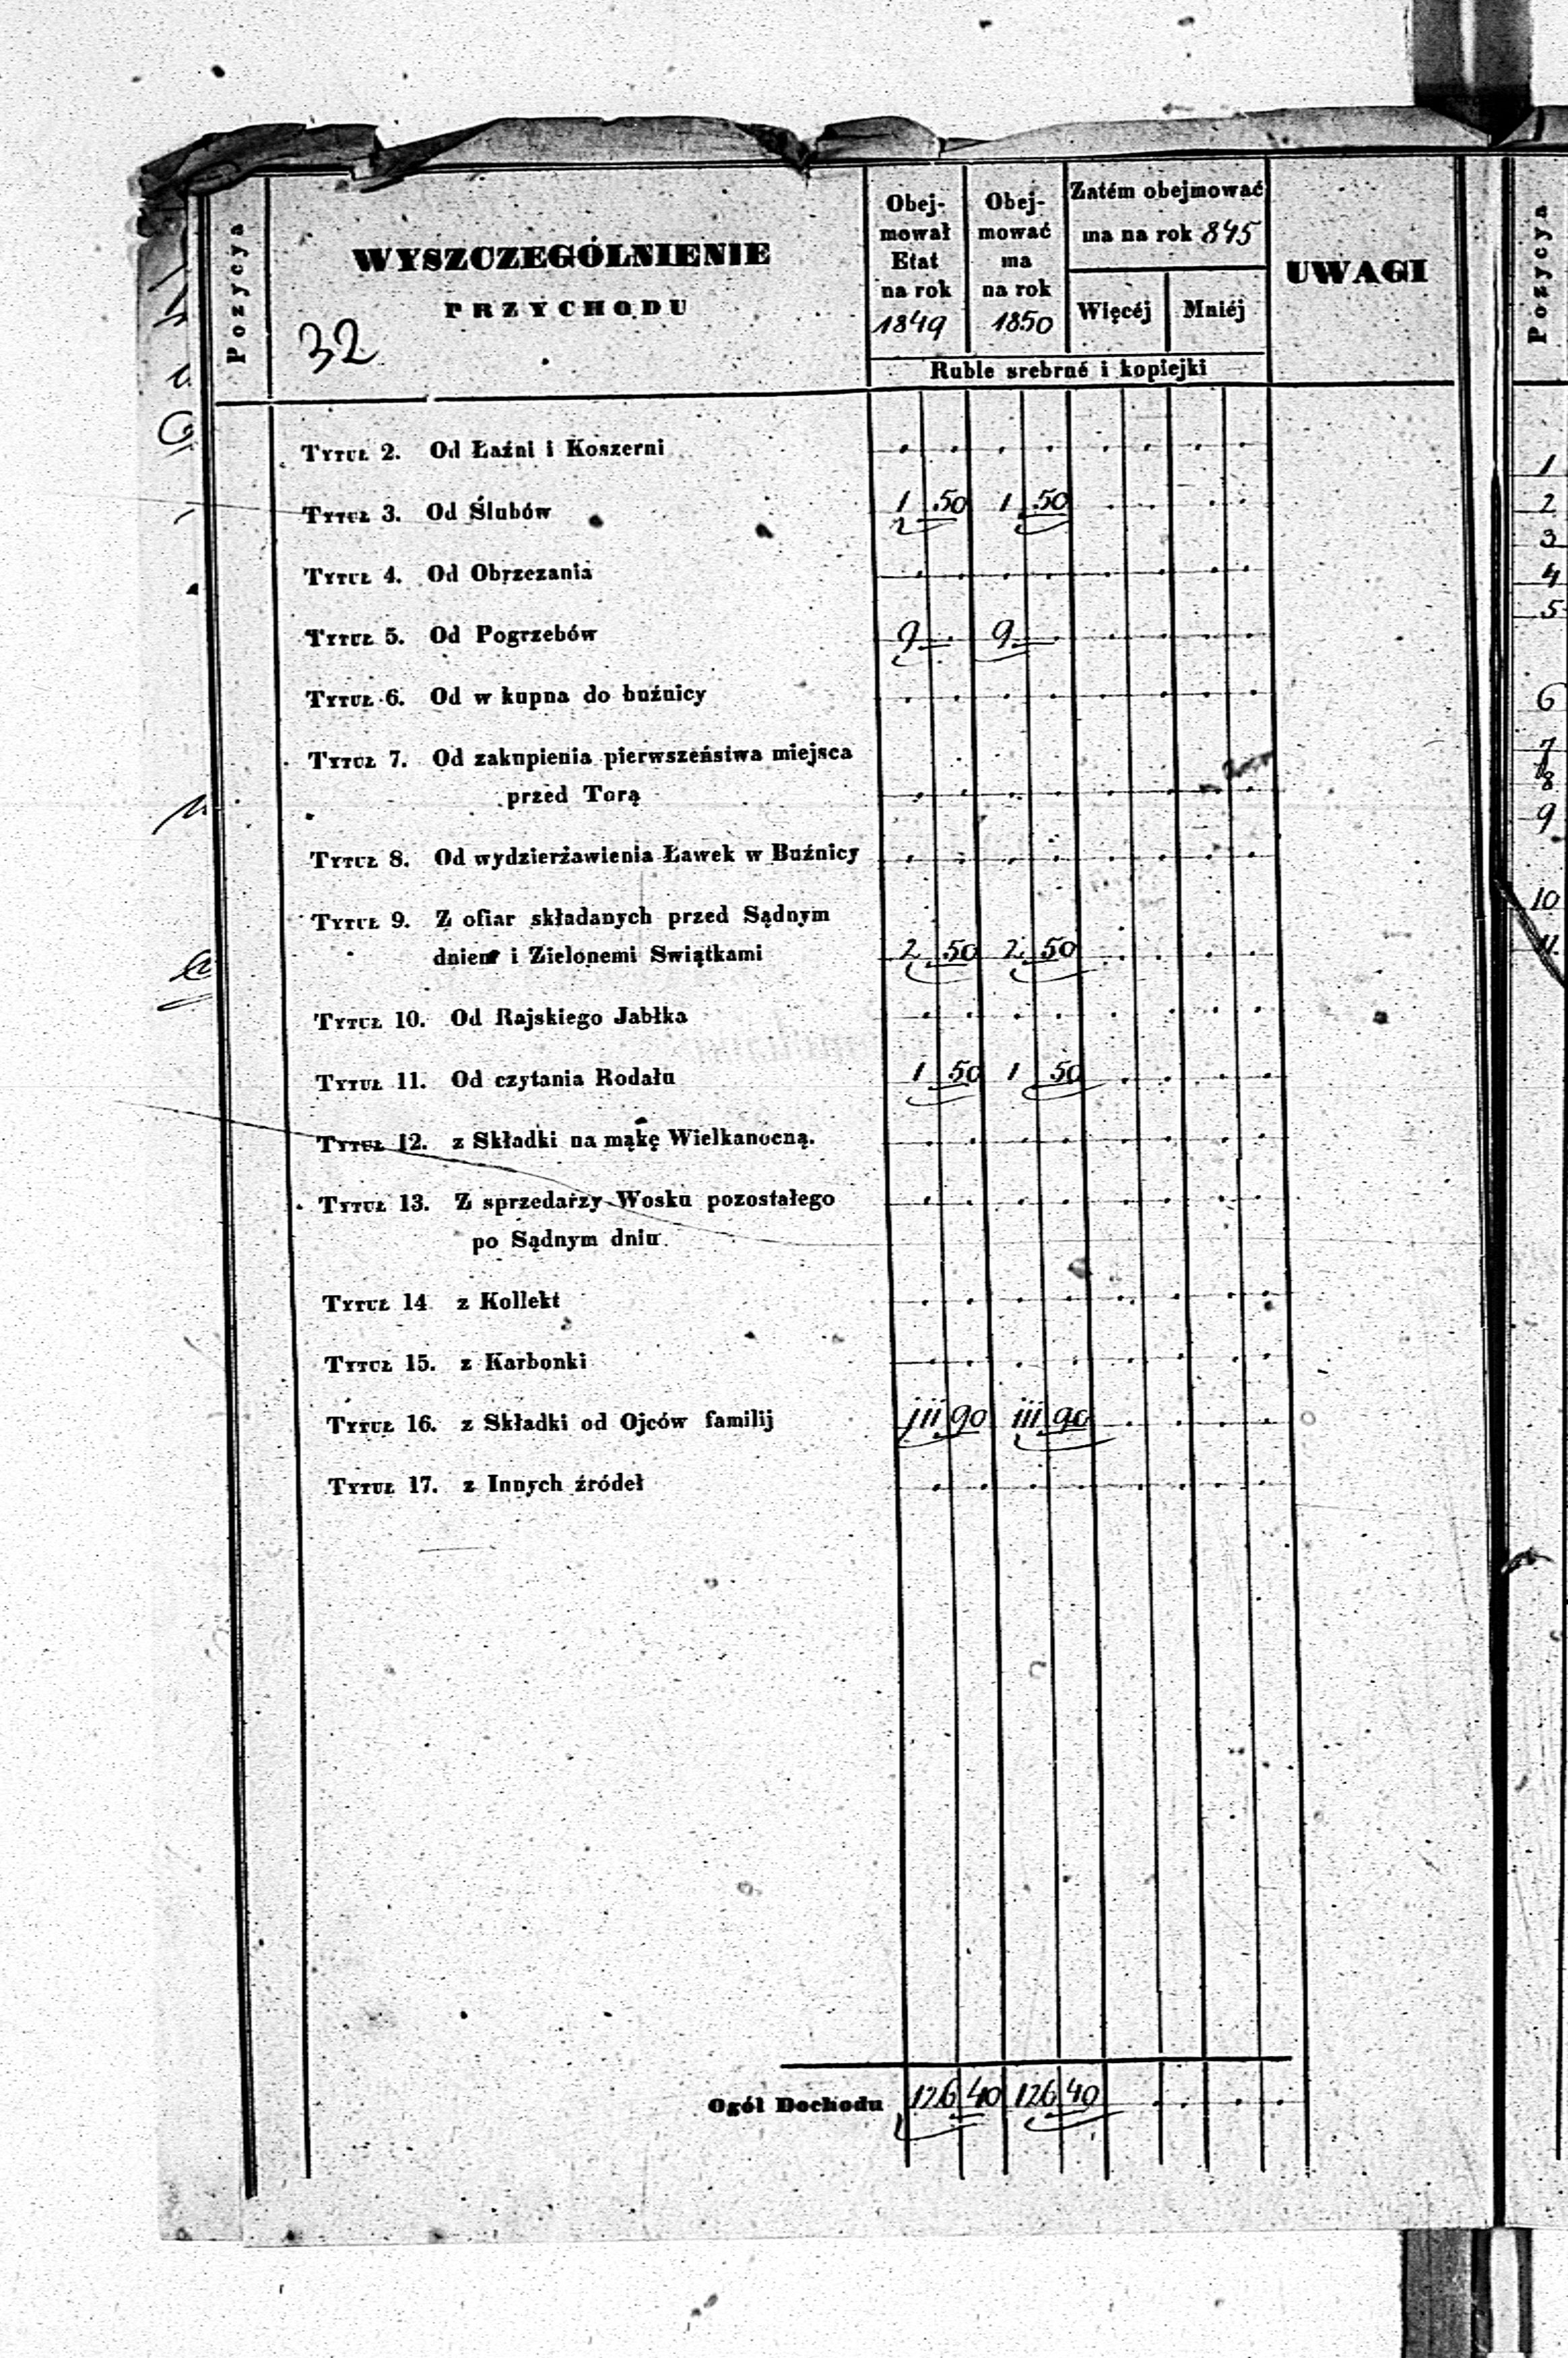 Pozycya
WYSZCZEGÓLNIENIE
PRZYCHODU
32
Obej-
mował
Etat
na rok
1849
Obej-
mować
ma
na rok
1850
Zatém obejmować
ma na rok 845
Więcéj Mniéj
Ruble srebrné i kopiejki
UWAGI
Tytuł 2. Od Łaźni i Koszerni
Tytuł 3. Od Ślubów 1 50 1 50
Tytuł 4. Od Obrzezania
Tytuł 5. Od Pogrzebów 9 9
Tytuł 6. Od w kupna do buźnicy
Tytuł 7. Od zakupienia pierwszeństwa miejsca
przed Torą
Tytuł 8. Od wydzierżawienia Ławek w Buźnicy
Tytuł 9. Z ofiar składanych przed Sądnym
dniem i Zielonemi Swiątkami 2 50 2 50
Tytuł 10. Od Rajskiego Jabłka
Tytuł 11. Od czytania Rodału 1 50 1 50
Tytuł 12. z Składki na mąkę Wielkanocną.
Tytuł 13. Z sprzedarzy Wosku pozostałego
po Sądnym dniu
Tytuł 14 z Kollekt
Tytuł 15. z Karbonki
Tytuł 16. z Składki od Ojców familij 111 90 111 90
Tytuł 17. z Innych źródeł
Ogół Dochodu 126 40 126 40
Pozycya
1
2
3
4
5
6
7
8
9
10
11.